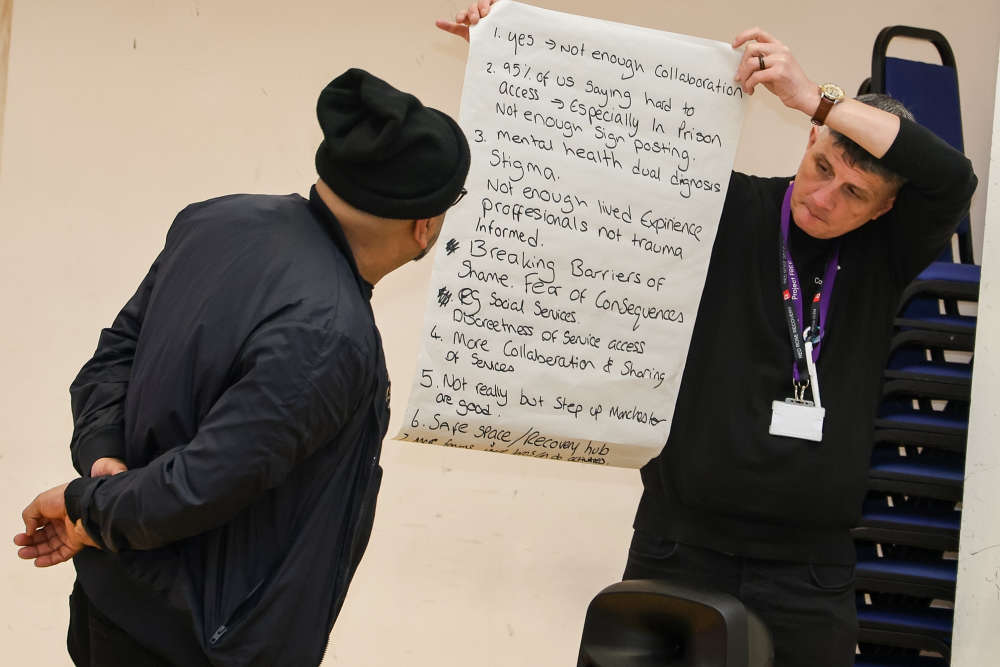 1. yes → Not enough Collaboration
2. 95% of us saying hard to
access → Especially In Prison
Not enough sign posting.
3. mental health dual diagnosis
Stigma.
Not enough lived Expirience
proffesionals not trauma
Informed.
Breaking Barriers of
Shame. Fear of Consequences
eg Social Services.
Discreetness of service access
4. More Collaberation & Sharing
of Services
5. Not really but step up Manchester
are good.
6. Safe space/Recovery hub
Project FREE
RED ROSE RECOVERY